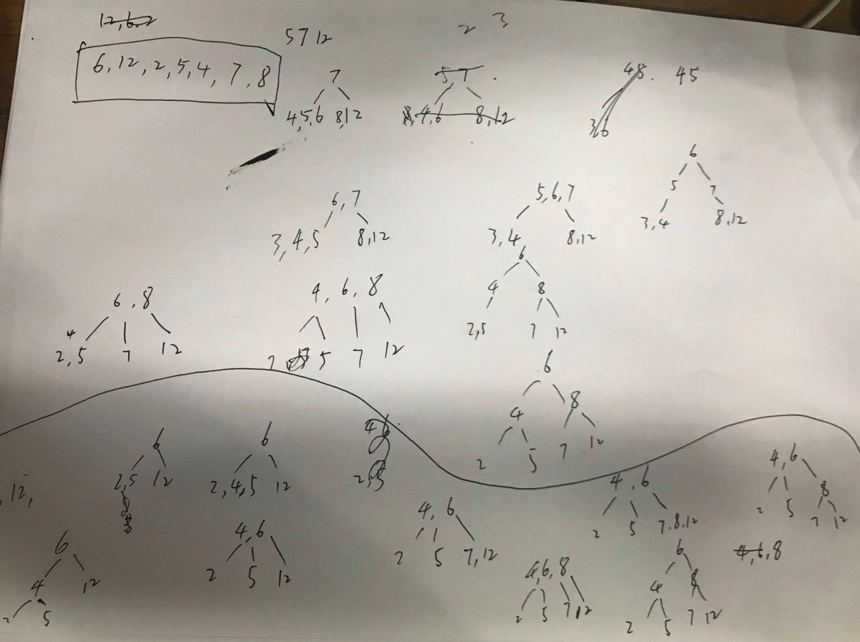 12,6,2
6,12,2,5,4,7,8
5 7 12
2 3
7
4,5,6 8,12
5 7
4,6 8,12
48. 45
36
6
5 7
3,4 8,12
6,7
3,4,5 8,12
5,6,7
3,4 8,12
6
4 8
2,5 7 12
6,8
4
2,5 7 12
4,6,8
2 5 7 12
6
4 8
2 5 7 12
12,
6
2,5 12
6
2,4,5 12
4 6
2,5
4,6
2 5 7,12
4,6
2 5 7,8,12
4,6
8
2 5 7 12
6
4 12
2 5
4,6
2 5 12
4,6,8
2 5 7 12
6
4 8
2 5 7 12
4,6,8